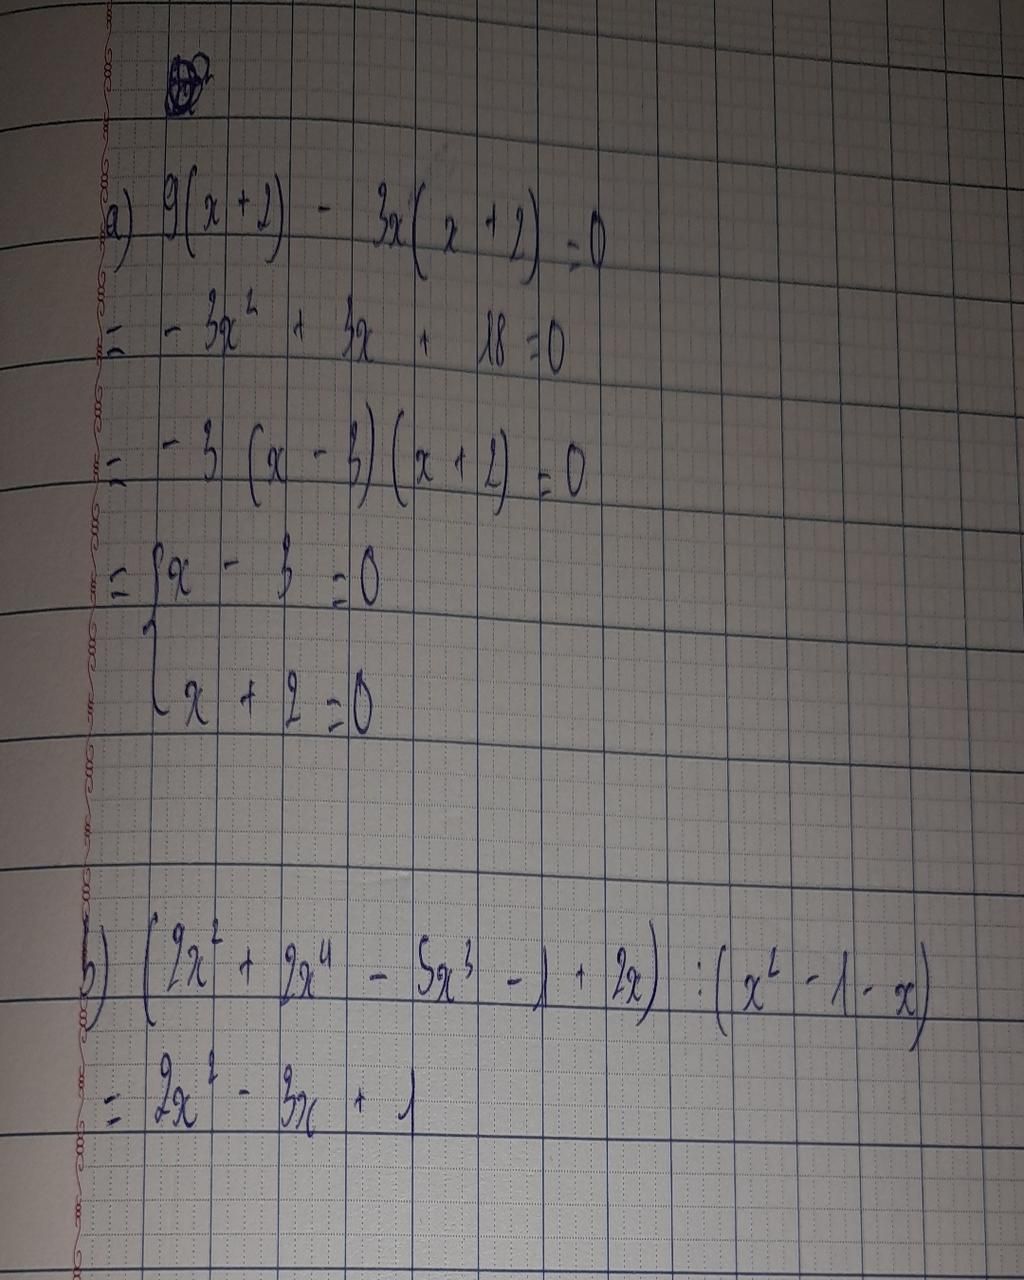 a) 9(x + 2) - 3x(x + 2) = 0
= - 3x² + 3x + 18 = 0
= - 3 (x - 3)(x + 2) = 0
= { x - 3 = 0
x + 2 = 0
b) (2x² + 2x⁴ - 5x³ - 1 + 2x) : (x² - 1 - x)
= 2x² - 3x + 1